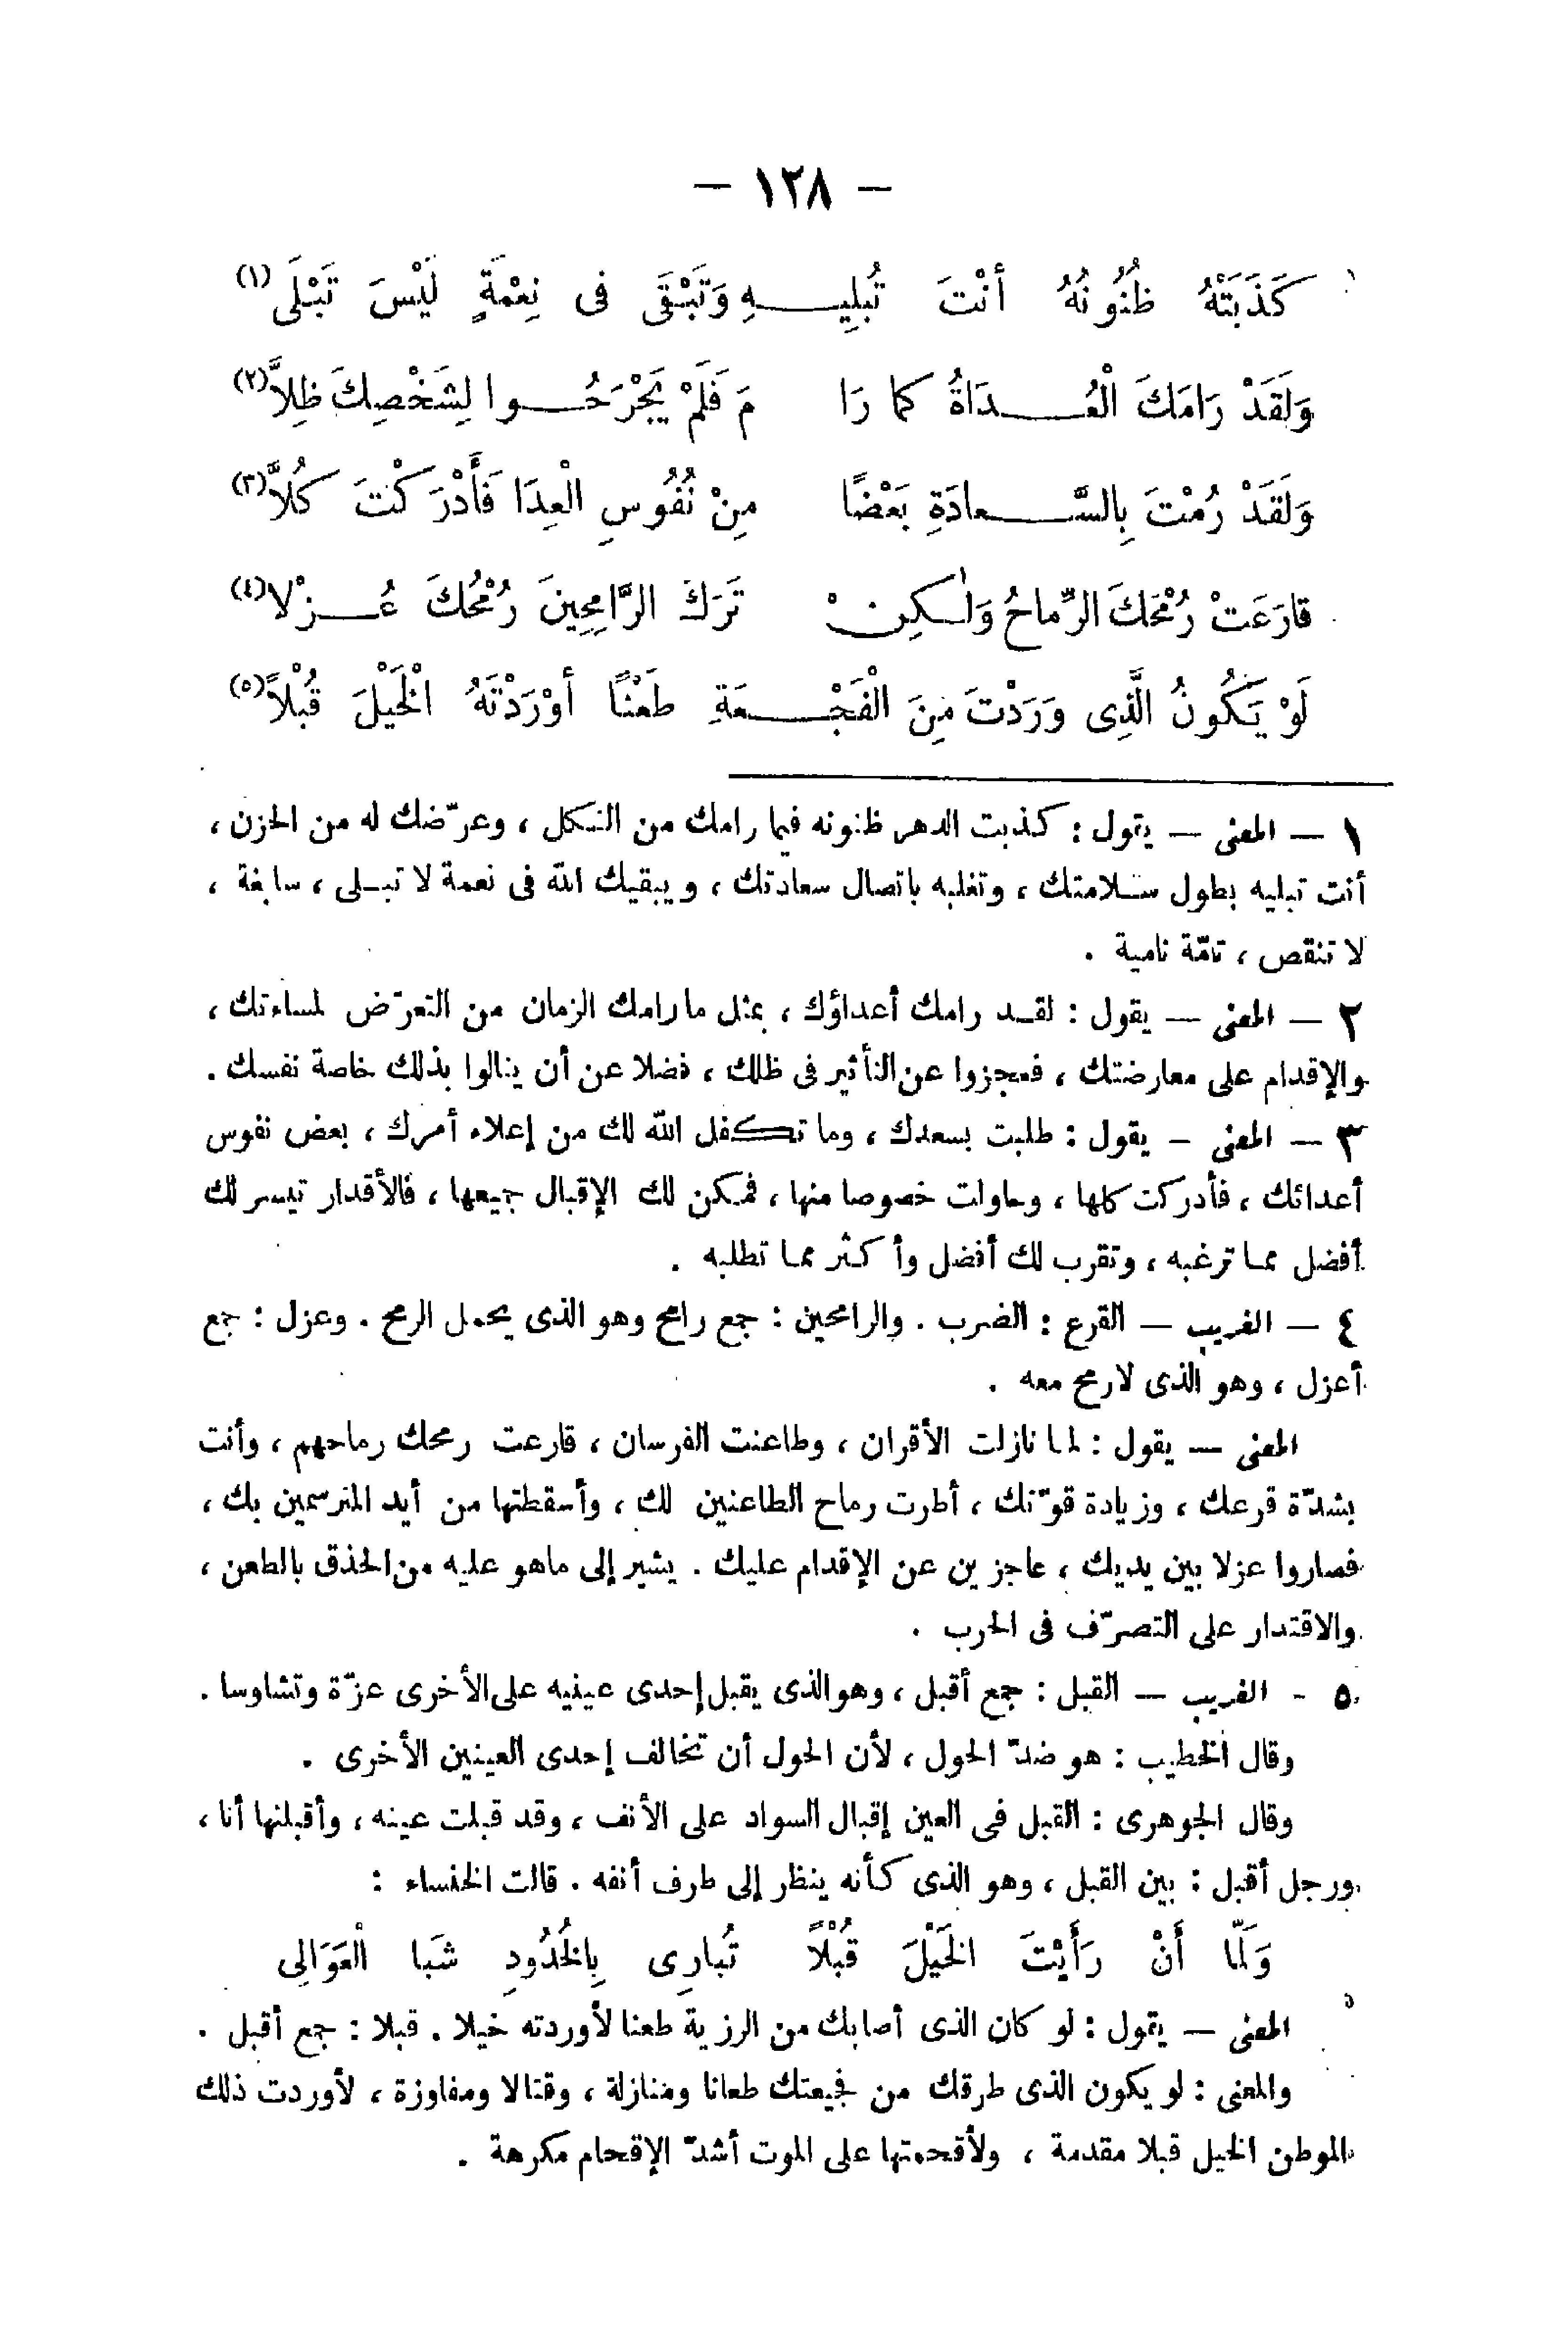 — ١٢٨ —
كَذَبَتْهُ ظُنُونُهُ أَنْتَ تُبلِيــهِ وَتَبْقَى فى نِعْمَةٍ لَيْسَ تَبْلَى (١)
وَلَقَدْ رَامَكَ الْعُــدَاةُ كما رَا مَ فَلَمْ يَجْرَحُــوا لِشَخْصِكَ ظِلاَّ (٢)
وَلَقَدْ رُمْتَ بِالسَّــعادَةِ بَعْضًا مِنْ نُفُوسِ الْعِدَا فَأَدْرَكْتَ كُلاَّ (٣)
قارَعَتْ رُمْحَكَ الرِّماحُ وَلٰـكِنْ تَرَكَ الرَّامِحِينَ رُمْحُكَ عُــزْلا (٤)
لَوْ يَكُونُ الَّذِى وَرَدْتَ مِنَ الْفَجْــعَةِ طَعْنًا أَوْرَدْتَهُ الْخَيْلَ قُبْلاً (٥)
١ — المعنى — يقول : كذبت الدهر ظنونه فيما رامك من الثكل ، وعرّضك له من الحزن ،
أنت تبليه بطول سـلامتك ، وتغلبه باتصال سعادتك ، ويبقيك الله فى نعمة لا تبـلى ، سابغة ،
لا تنقص ، تامّة نامية .
٢ — المعنى — يقول : لقـد رامك أعداؤك ، بمثل ما رامك الزمان من التعرّض لمساءتك ،
والإقدام على معارضتك ، فعجزوا عن التأثير فى ظلك ، فضلا عن أن ينالوا بذلك خاصة نفسك .
٣ — المعنى — يقول : طلبت بسعدك ، وما تكفل الله لك من إعلاء أمرك ، بعض نفوس
أعدائك ، فأدركت كلها ، وحاولت خصوصا منها ، فمكن لك الإقبال جميعها ، فالأقدار تيسر لك
أفضل مما ترغبه ، وتقرب لك أفضل وأكثر مما تطلبه .
٤ — الغريب — القرع : الضرب . والرامحين : جمع رامح وهو الذى يحمل الرمح . وعزل : جمع
أعزل ، وهو الذى لا رمح معه .
المعنى — يقول : لما نازلت الأقران ، وطاعنت الفرسان ، قارعت رمحك رماحهم ، وأنت
بشدّة قرعك ، وزيادة قوّتك ، أطرت رماح الطاعنين لك ، وأسقطتها من أيد المترسمين بك ،
فصاروا عزلا بين يديك ، عاجزين عن الإقدام عليك . يشير إلى ماهو عليه من الحذق بالطعن ،
والاقتدار على التصرّف فى الحرب .
٥ - الغريب — القبل : جمع أقبل ، وهو الذى يقبل إحدى عينيه على الأخرى عزّة وتشاوسا .
وقال الخطيب : هو ضدّ الحول ، لأن الحول أن تخالف إحدى العينين الأخرى .
وقال الجوهرى : القبل فى العين إقبال السواد على الأنف ، وقد قبلت عينه ، وأقبلتها أنا ،
ورجل أقبل : بين القبل ، وهو الذى كأنه ينظر إلى طرف أنفه . قالت الخنساء :
وَلَمَّا أَنْ رَأَيْتَ الخَيْلَ قُبْلًا تُبارِى بِالخُدُودِ شَبا الْعَوَالِى
المعنى — يقول : لو كان الذى أصابك من الرزية طعنا لأوردته خيلا . قبلا : جمع أقبل .
والمعنى : لو يكون الذى طرقك من فجيعتك طعانا ومنازلة ، وقتالا ومفاوزة ، لأوردت ذلك
الموطن الخيل قبلا مقدمة ، ولأقحمتها على الموت أشدّ الإقحام مكرهة .